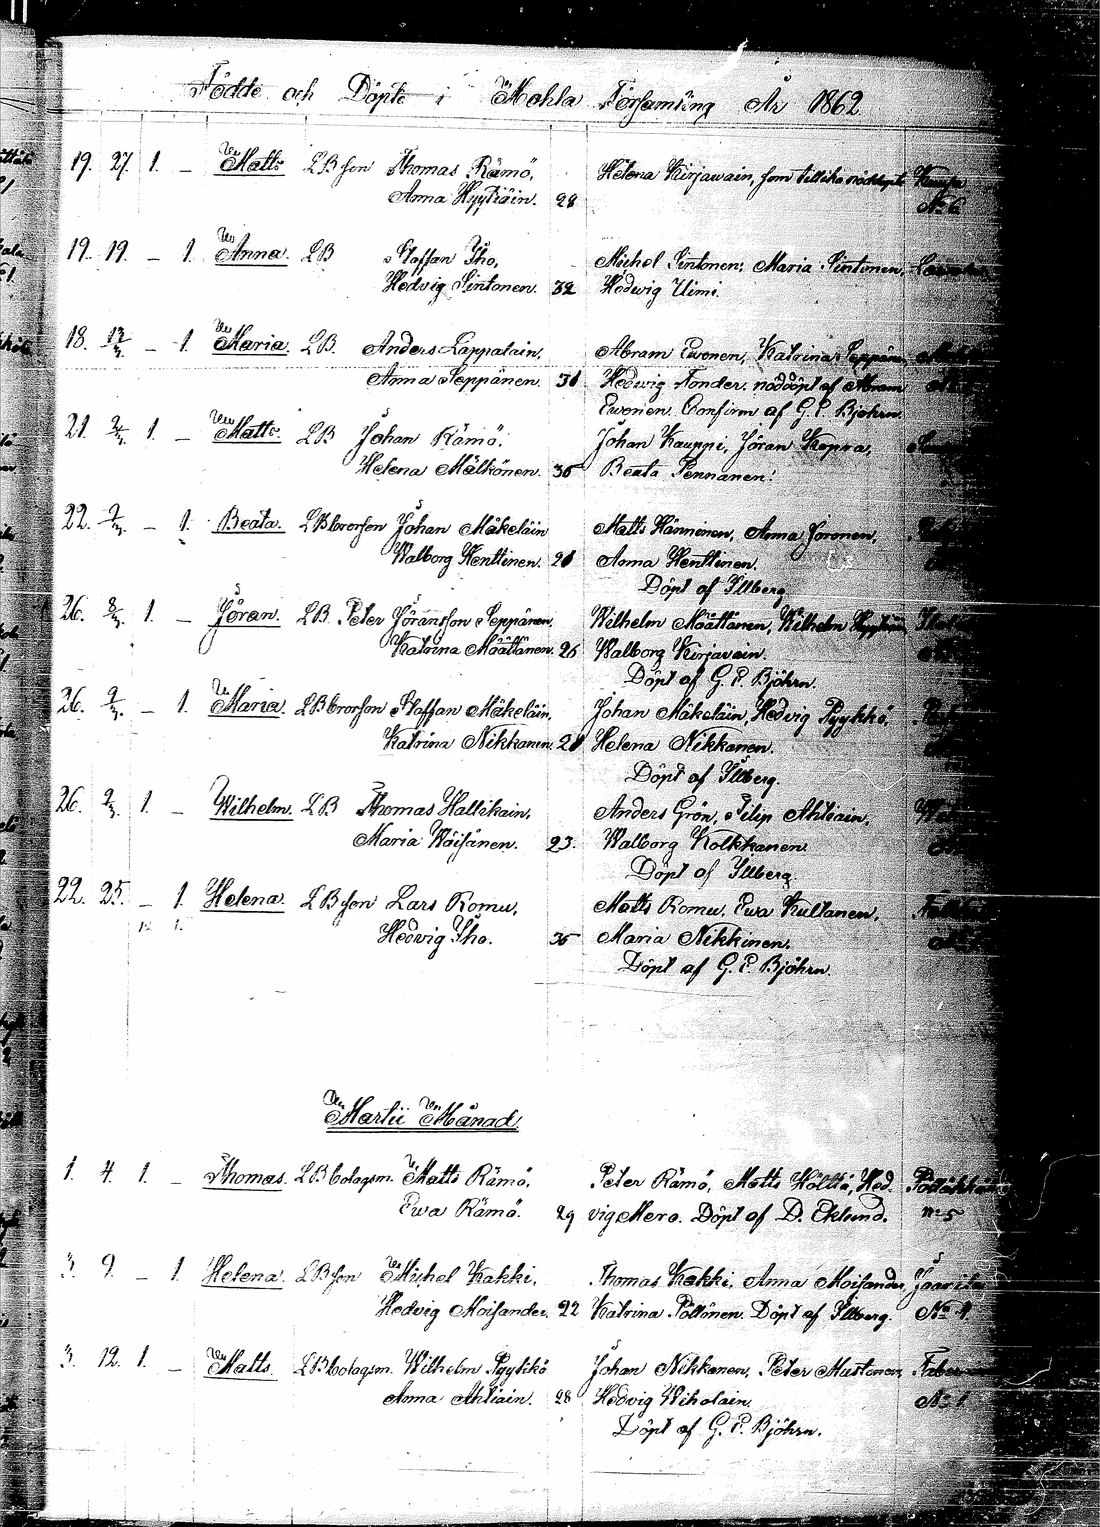 Födde och Döpte i Mohla Församling År 1862
19. 27. 1. – Matts LBson Thomas Rämö, Helena Kirjawain, som tillika nöddöpt
Anna Hyytiäin. 28 No 6
19. 19. – 1. Anna LB Staffan Iho, Michel Sintonen; Maria Sintonen,
Hedvig Sintonen. 32 Hedwig Uimi.
18. 13/3. – 1. Maria. LB. Anders Lappalain, Abram Ewonen, Katrina Seppänen
Anna Seppänen. 31 Hedwig Tonder. nöddöpt af Abram
Ewonen. Confirm af G. P. Björhn.
21. 2/3. 1. – Matts. LB Johan Rämö. Johan Kauppi, Jöran Kopra,
Helena Mälkönen. 36 Beata Pennanen.
22. 2/3. – 1. Beata. LBbrorson Johan Mäkeläin Matts Hänninen, Anna Joronen,
Walborg Henttinen. 21 Anna Henttinen.
Döpt af Illberg.
26. 8/3. 1. – Jöran. LB. Peter Jöransson Seppänen. Wilhelm Määttänen, Wilhelm
Katrina Määttänen. 26 Walborg Kirjavain.
Döpt af G. P. Björhn.
26. 9/3. – 1. Maria. LBbrorson Staffan Mäkeläin, Johan Mäkeläin, Hedvig Pyykkö,
Katrina Nikkanen. 21 Helena Nikkanen.
Döpt af Illberg.
26. 2/3. 1. – Wilhelm. LB Thomas Hallikain, Anders Grön, Filip Ahtiain,
Maria Wäisänen. 23. Walborg Kolkkanen.
Döpt af Illberg.
22. 25. – 1. Helena. LBson Lars Romu, Matts Romu, Ewa Kultanen,
Hedvig Iho. 36 Maria Nikkinen.
Döpt af G. P. Björhn.
Martii Månad.
1. 4. 1. – Thomas. LBbolagsm. Matts Rämö, Peter Rämö, Matts Hölttä, Hed-
Ewa Rämö. 29 vig Mero. Döpt af D. Eklund. No 5
3. 9. – 1. Helena. LBson Michel Kakki, Thomas Kakki, Anna Moisander,
Hedvig Moisander. 22 Katrina Pöllönen. Döpt af Illberg. No 4.
3. 12. 1. – Matts. LBbolagsm. Wilhelm Pyykkö Johan Nikkonen, Peter Mustonen,
Anna Ahtiain. 28 Hedvig Wiholain. No 1.
Döpt af G. P. Björhn.